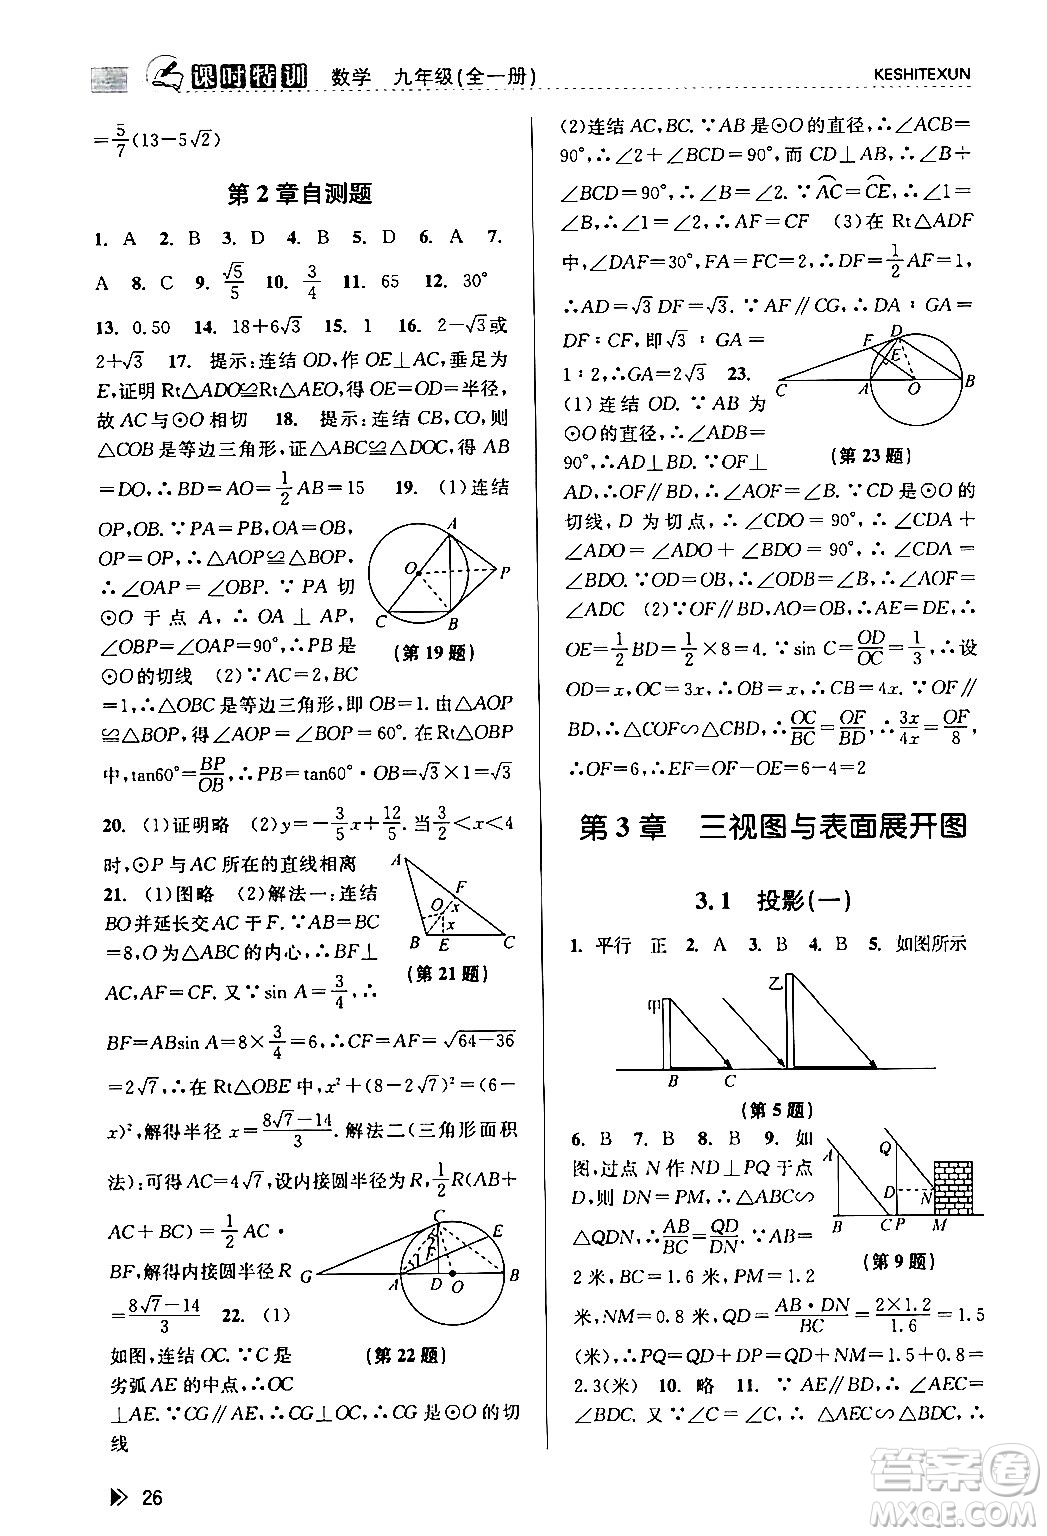 课时特训 数学 九年级(全一册)
KESHITEXUN
=5/7(13-5√2)
第2章自测题
1. A 2. B 3. D 4. B 5. D 6. A 7.
A 8. C 9. √5/5 10. 3/4 11. 65 12. 30°
13. 0.50 14. 18+6√3 15. 1 16. 2-√3或
2+√3 17. 提示:连结OD,作OE⊥AC,垂足为
E,证明Rt△ADO≌Rt△AEO,得OE=OD=半径,
故AC与⊙O相切 18. 提示:连结CB,CO,则
△COB是等边三角形,证△ABC≌△DOC,得AB
=DO,∴BD=AO=1/2AB=15 19. (1)连结
OP,OB.∵PA=PB,OA=OB,
OP=OP,∴△AOP≌△BOP,
∴∠OAP=∠OBP.∵PA切
⊙O于点A,∴OA⊥AP,
∠OBP=∠OAP=90°,∴PB是
⊙O的切线 (2)∵AC=2,BC
=1,∴△OBC是等边三角形,即OB=1.由△AOP
≌△BOP,得∠AOP=∠BOP=60°.在Rt△OBP
中,tan60°=BP/OB,∴PB=tan60°·OB=√3×1=√3
A
O
P
C
B
(第19题)
20. (1)证明略 (2)y=-3/5x+12/5.当3/4<x<4
时,⊙P与AC所在的直线相离
21. (1)图略 (2)解法一:连结
BO并延长交AC于F.∵AB=BC
=8,O是△ABC的内心,∴BF⊥
AC,AF=CF.又∵sin A=3/4,∴
BF=ABsin A=8×3/4=6,∴CF=√64-36
=2√7,∴在Rt△OBE中,x²+(8-2√7)²=(6-
x)²,解得半径x=8√7-14/3.解法二(三角形面积
法):可得AC=4√7,设内接圆半径为R,1/2R(AB+
AC+BC)=1/2AC·
BF,解得内接圆半径R
=8√7-14/3 22. (1)
如图,连结OC.∵C是
劣弧AE的中点,∴OC
⊥AE.∵CG∥AE,∴CG⊥OC,∴CG是⊙O的切
线
A
F
O
x
x
B E C
(第21题)
C
E
F
1
2
G
A D O B
(第22题)
26
(2)连结AC,BC.∵AB是⊙O的直径,∴∠ACB=
90°,∴∠2+∠BCD=90°,而CD⊥AB,∴∠B+
∠BCD=90°,∴∠B=∠2.∵AC=CE,∴∠1=
∠B,∴∠1=∠2,∴AF=CF (3)在Rt△ADF
中,∠DAF=30°,FA=FC=2,∴DF=1/2AF=1,
∴AD=√3DF=√3.∵AF∥CG,∴DA∶GA=
DF∶CF,即√3∶GA=
1∶2,∴GA=2√3 23.
(1)连结OD.∵AB为
⊙O的直径,∴∠ADB=
90°,∴AD⊥BD.∵OF⊥
AD,∴OF∥BD,∴∠AOF=∠B.∵CD是⊙O的
切线,D为切点,∴∠CDO=90°,∴∠CDA+
∠ADO=∠ADO+∠BDO=90°,∴∠CDA=
∠BDO.∵OD=OB,∴∠ODB=∠B,∴∠AOF=
∠ADC (2)∵OF∥BD,AO=OB,∴AE=DE,∴
OE=1/2BD=1/2×8=4.∵sin C=OD/OC=1/3,∴设
OD=x,OC=3x,∴OB=x,∴CB=4x.∵OF∥
BD,∴△COF∽△CBD,∴OC/BC=OF/BD,∴3x/4x=OF/8,
∴OF=6,∴EF=OF-OE=6-4=2
D
F
E
C A O B
(第23题)
第3章 三视图与表面展开图
3.1 投影(一)
1. 平行 正 2. A 3. B 4. B 5. 如图所示
甲
乙
B C
(第5题)
6. B 7. B 8. B 9. 如
图,过点N作ND⊥PQ于点
D,则DN=PM,∴△ABC∽
△QDN,∴AB/BC=QD/DN.∵AB=
2米,BC=1.6米,PM=1.2
米,NM=0.8米,∴QD=AB·DN/BC=2×1.2/1.6=1.5
(米),∴PQ=QD+DP=QD+NM=1.5+0.8=
2.3(米) 10. 略 11. ∵AE∥BD,∴∠AEC=
∠BDC.又∵∠C=∠C,∴△AEC∽△BDC,∴
Q
A
D
N
B C P M
(第9题)
答案圈
MXQE.COM